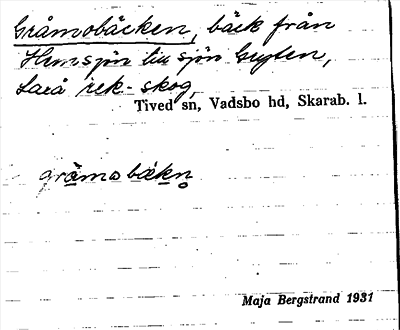 Gråmobäcken, bäck från
Hemsjön till sjön Gryten,
Laxå rek-skog,
Tived sn, Vadsbo hd, Skarab. l.
gråmobäkn̥
Maja Bergstrand 1931